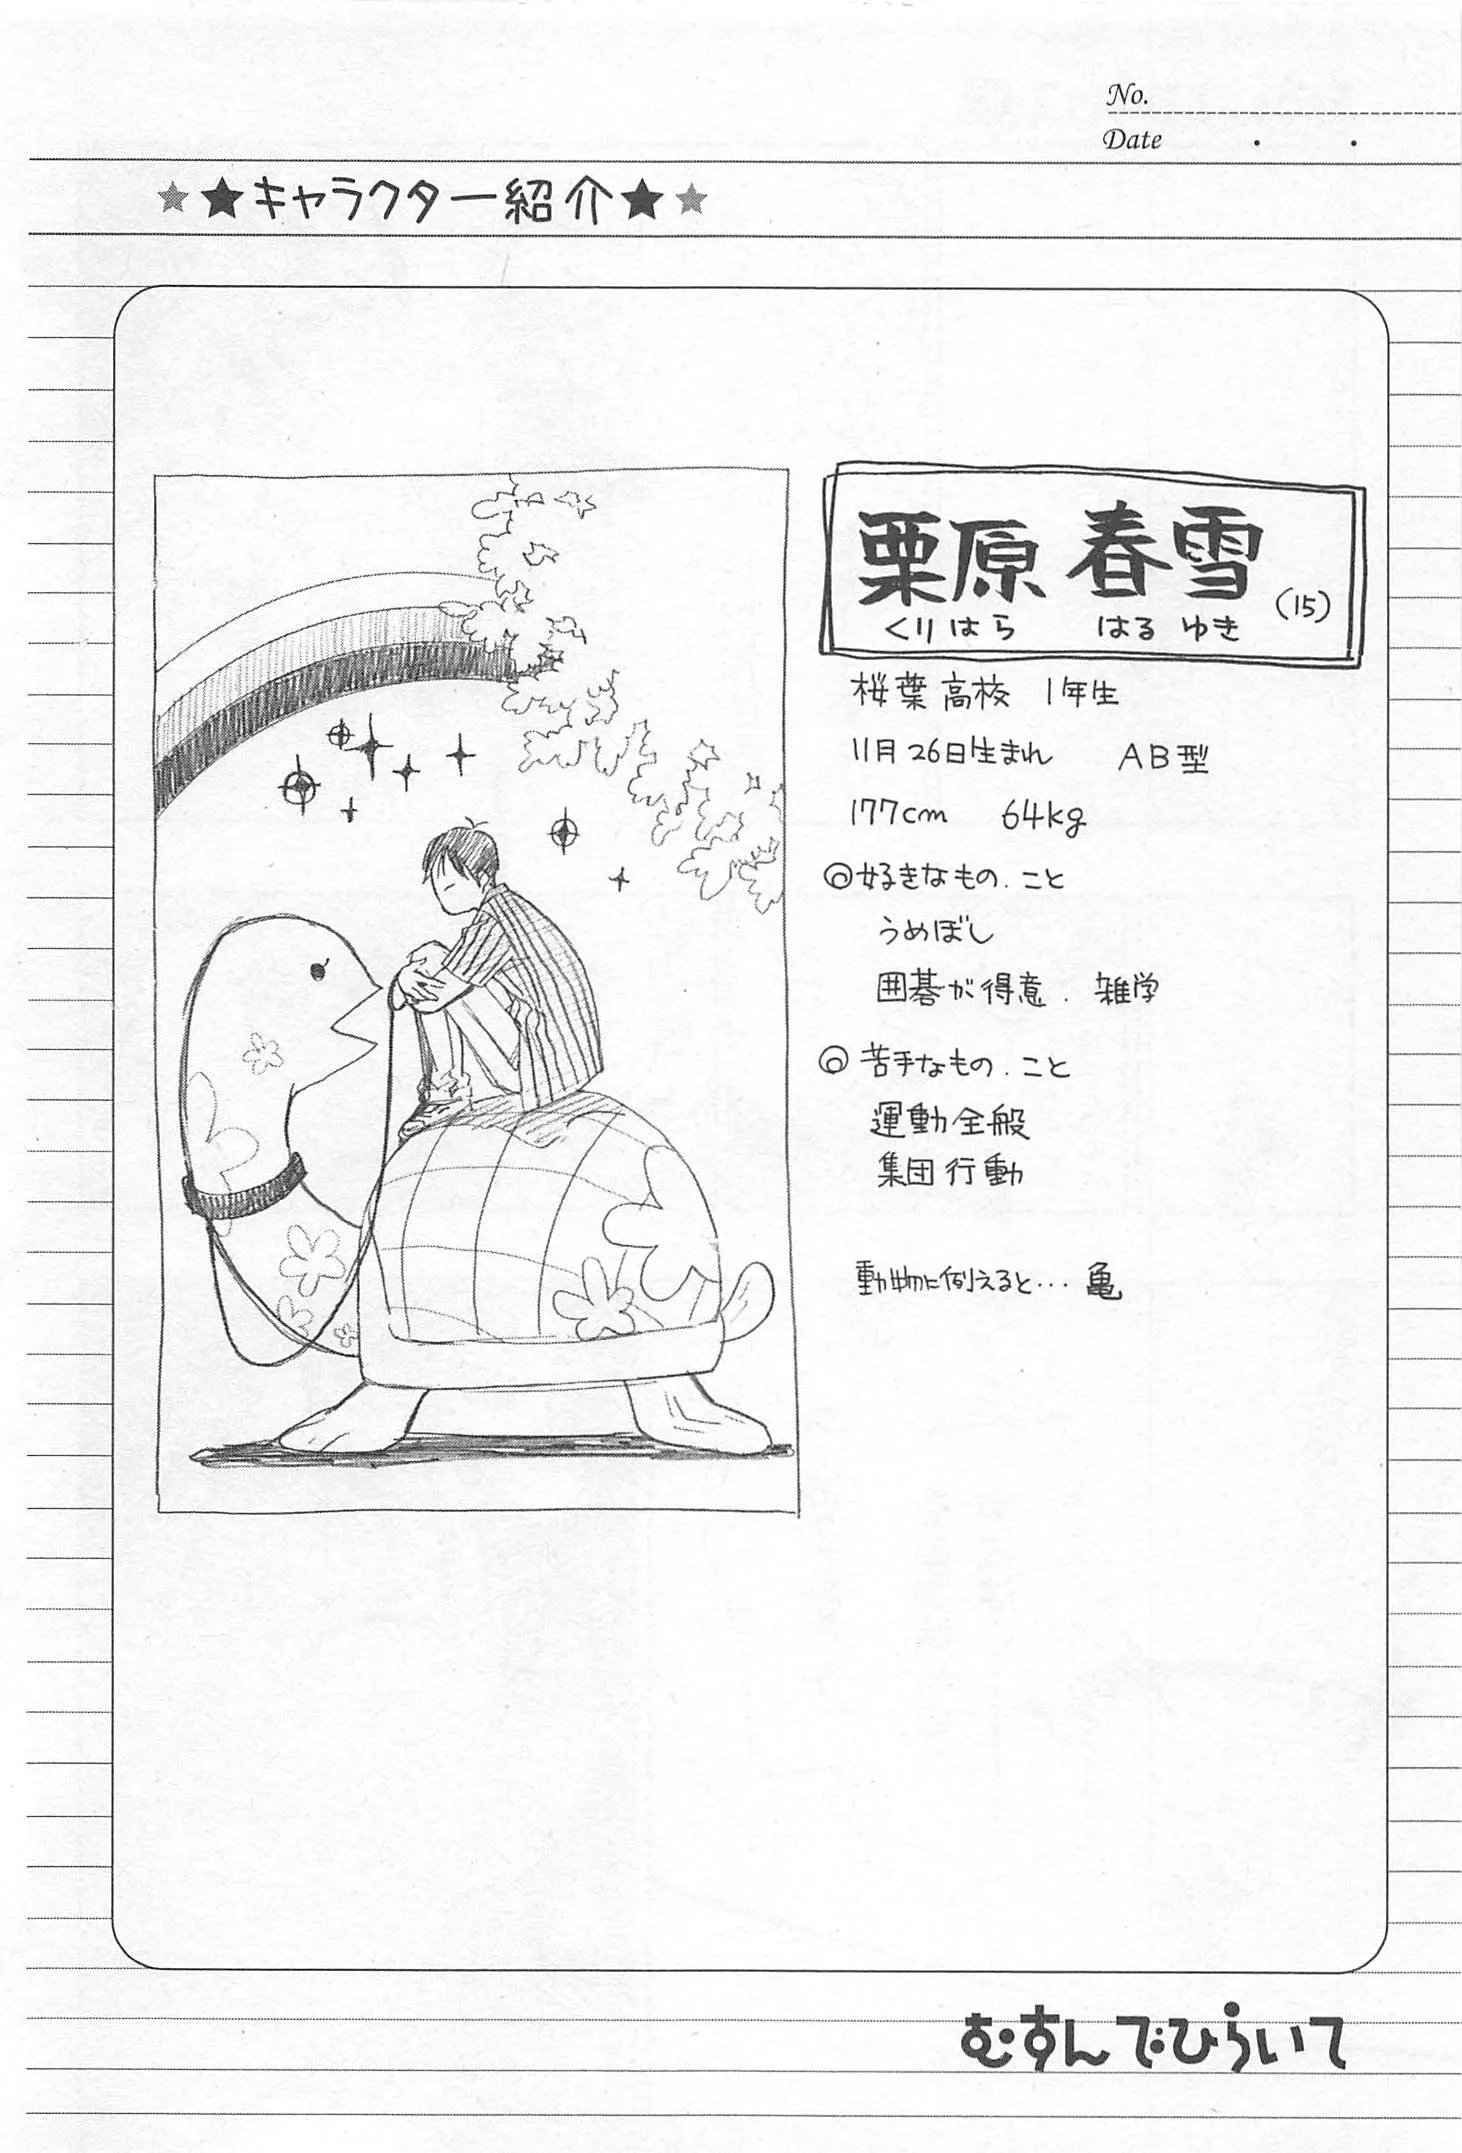 No.
Date . .
★★キャラクター紹介★★
栗原 春雪 (15)
くりはら はるゆき
桜葉高校 1年生
11月26日生まれ AB型
177cm 64kg
◎好きなもの.こと
うめぼし
囲碁が得意. 雑学
◎苦手なもの.こと
運動全般
集団行動
動物に例えると… 亀
むすんでひらいて